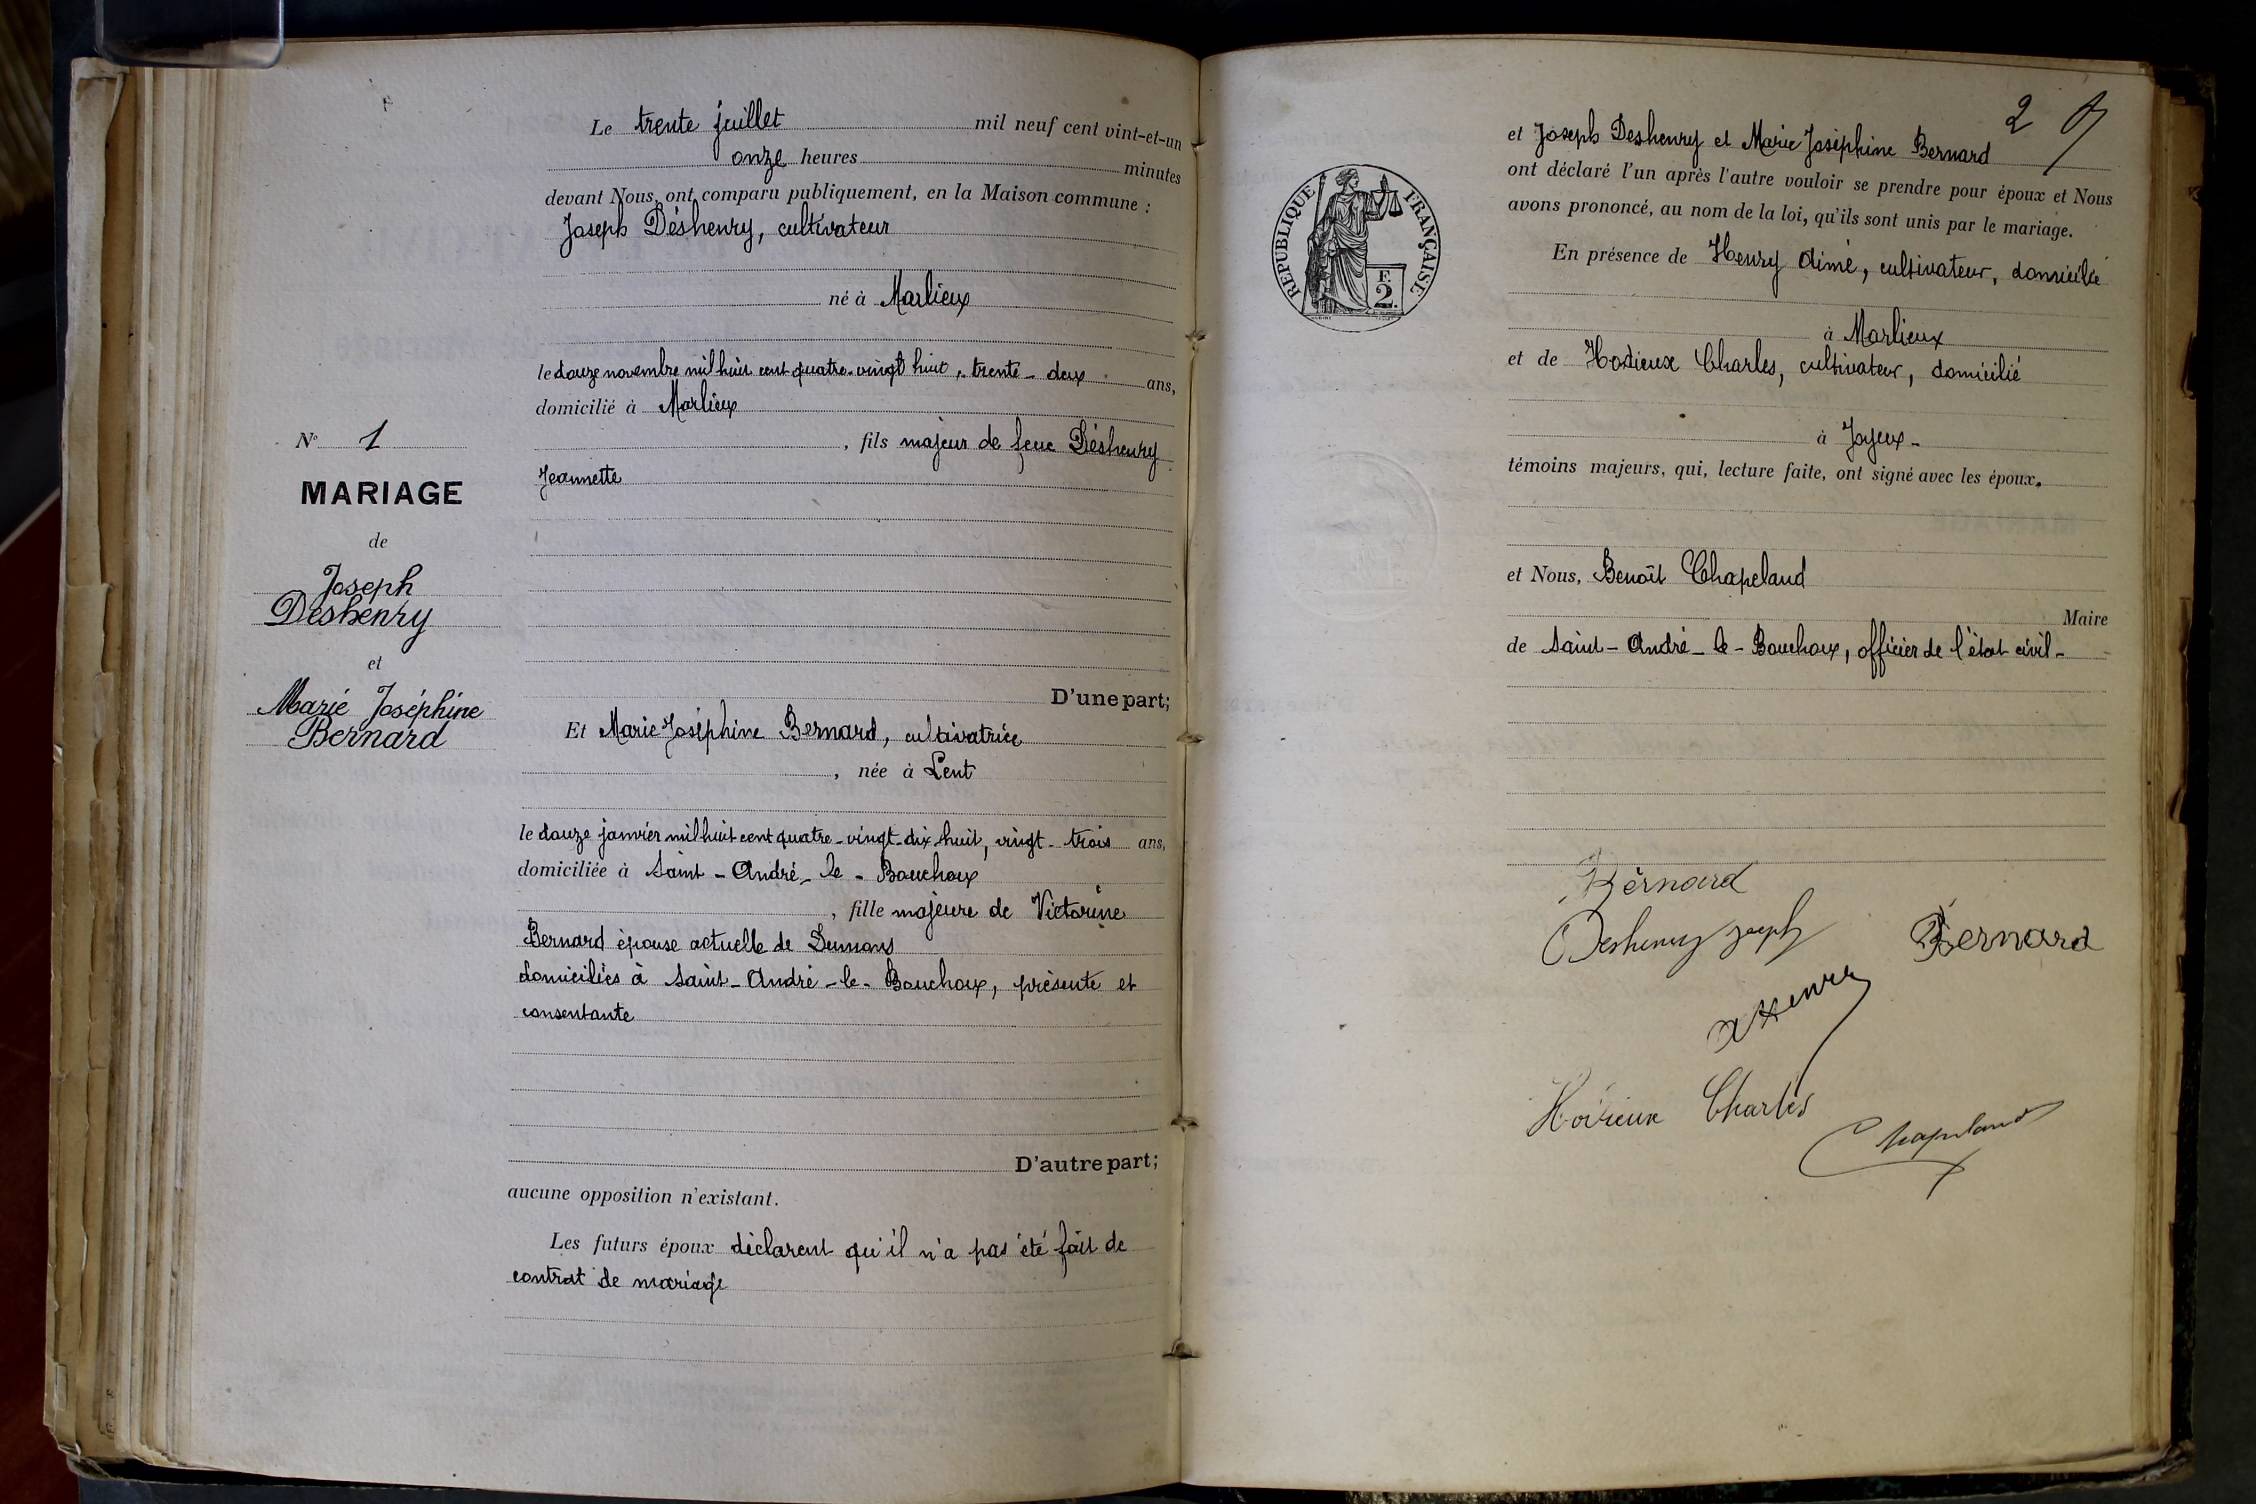 Le trente juillet mil neuf cent vint-et-un
onze heures minutes
devant Nous, ont comparu publiquement, en la Maison commune :
Joseph Déshenry, cultivateur
né à Marlieux
le douze novembre mil huit cent quatre-vingt huit, trente-deux ans,
domicilié à Marlieux
, fils majeur de feue Déshenry
Jeannette
N° 1
MARIAGE
de
Joseph
Déshenry
et
Marie Joséphine
Bernard
D'une part;
Et Marie Joséphine Bernard, cultivatrice
, née à Lent
le douze janvier mil huit cent quatre-vingt-dix huit, vingt-trois ans,
domiciliée à Saint-André-le-Bouchoux
, fille majeure de Victorine
Bernard épouse actuelle de Dumons
domiciliés à Saint-André-le-Bouchoux, présente et
consentante
D'autre part;
aucune opposition n'existant.
Les futurs époux déclarent qu'il n'a pas été fait de
contrat de mariage
2
RÉPUBLIQUE FRANÇAISE
F.
2
et Joseph Deshenry et Marie Joséphine Bernard
ont déclaré l'un après l'autre vouloir se prendre pour époux et Nous
avons prononcé, au nom de la loi, qu'ils sont unis par le mariage.
En présence de Henry Aimé, cultivateur, domicilié
à Marlieux
et de Hodieux Charles, cultivateur, domicilié
à Joyeux-
témoins majeurs, qui, lecture faite, ont signé avec les époux.
et Nous, Benoît Chapeland
Maire
de Saint-André-le-Bouchoux, officier de l'état civil-
Bernard
Deshenry Joseph Bernard
A Henry
Charles
Chapeland